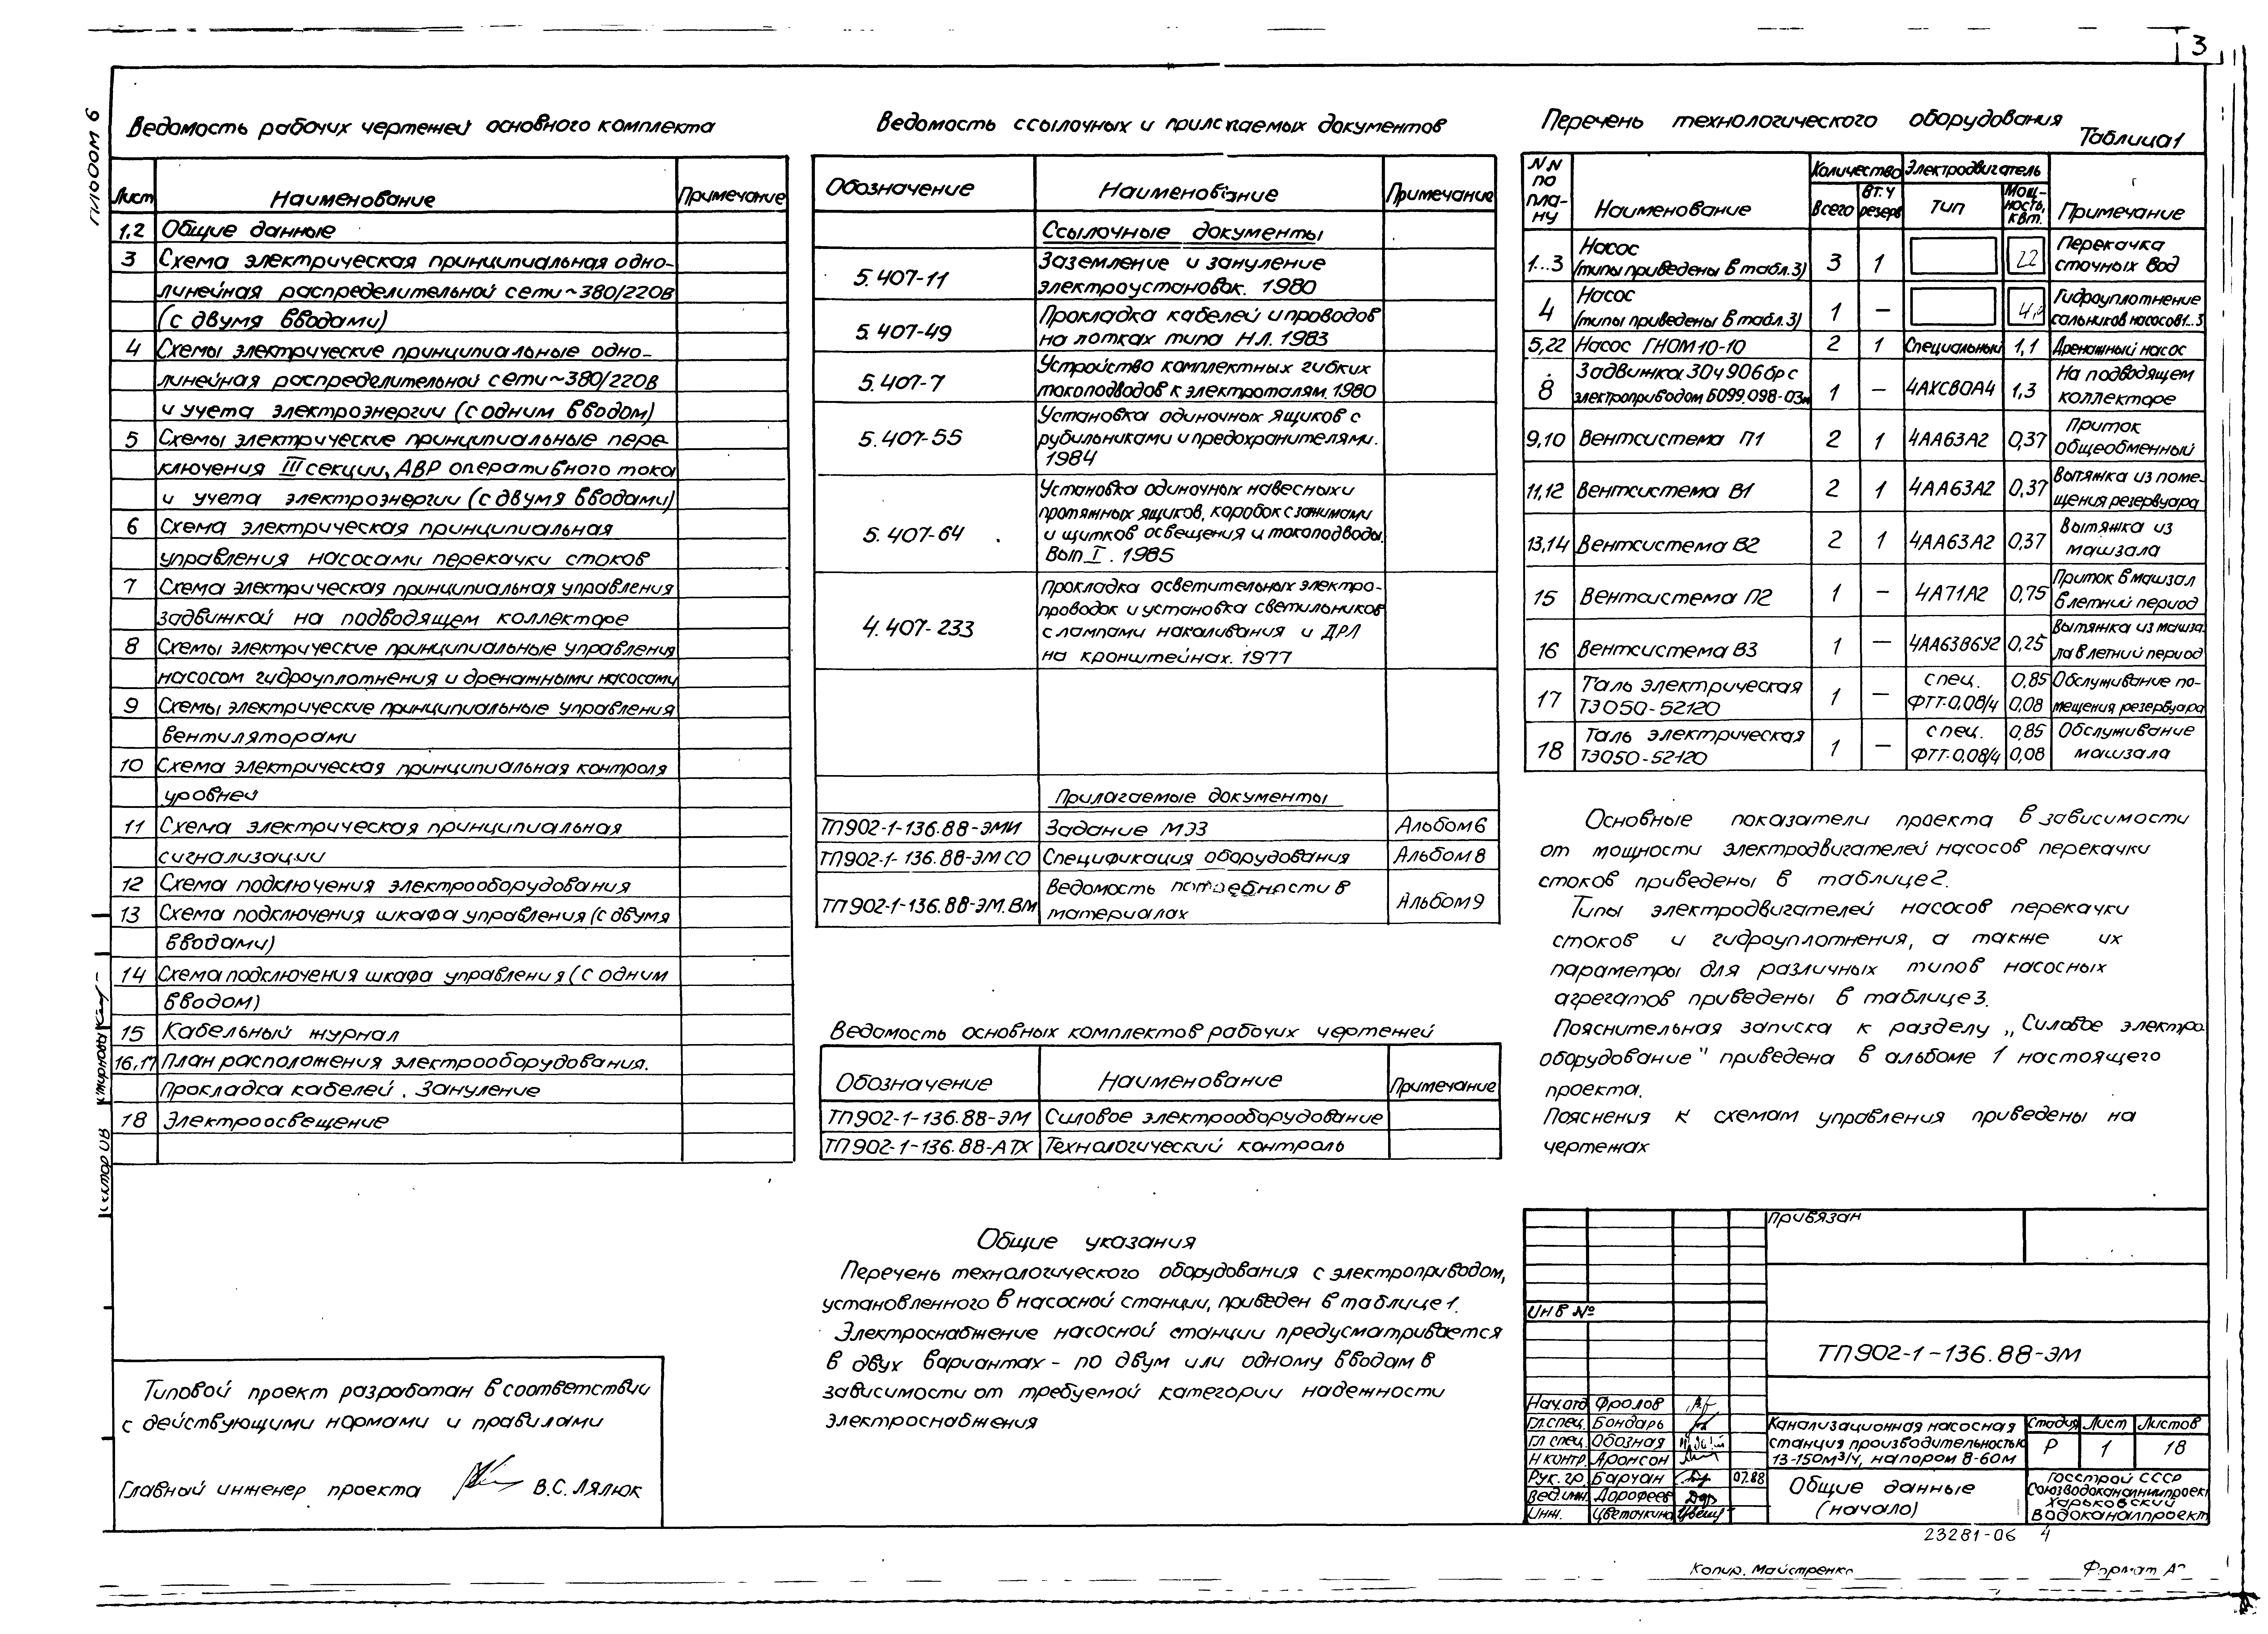 3
Альбом 6
Ведомость рабочих чертежей основного комплекта
Лист Наименование Примечание
1,2 Общие данные
3 Схема электрическая принципиальная одно-
линейная распределительной сети ~380/220В
(с двумя вводами)
4 Схемы электрические принципиальные одно-
линейная распределительной сети ~380/220В
и учета электроэнергии (с одним вводом)
5 Схемы электрические принципиальные пере-
ключения III секции, АВР оперативного тока
и учета электроэнергии (с двумя вводами)
6 Схема электрическая принципиальная
управления насосами перекачки стоков
7 Схема электрическая принципиальная управления
задвижкой на подводящем коллекторе
8 Схемы электрические принципиальные управления
насосом гидроуплотнения и дренажными насосами
9 Схемы электрические принципиальные управления
вентиляторами
10 Схема электрическая принципиальная контроля
уровней
11 Схема электрическая принципиальная
сигнализации
12 Схема подключения электрооборудования
13 Схема подключения шкафа управления (с двумя
вводами)
14 Схема подключения шкафа управления (с одним
вводом)
15 Кабельный журнал
16,17 План расположения электрооборудования.
Прокладка кабелей. Зануление
18 Электроосвещение
Типовой проект разработан в соответствии
с действующими нормами и правилами
Главный инженер проекта В.С. Лялюк
Ведомость ссылочных и прилагаемых документов
Обозначение Наименование Примечание
Ссылочные документы
5.407-11 Заземление и зануление
электроустановок. 1980
5.407-49 Прокладка кабелей и проводов
на лотках типа НЛ. 1983
5.407-7 Устройство комплектных гибких
токоподводов к электроталям. 1980
5.407-55 Установка одиночных ящиков с
рубильниками и предохранителями.
1984
5.407-64 Установка одиночных навесных и
протяжных ящиков, коробок с зажимами
и щитков освещения и токоподводы.
Вып. I. 1985
4.407-233 Прокладка осветительных электро-
проводок и установка светильников
с лампами накаливания и ДРЛ
на кронштейнах. 1977
Прилагаемые документы
ТП902-1-136.88-ЭМИ Задание МЭЗ Альбом 6
ТП902-1-136.88-ЭМ.СО Спецификация оборудования Альбом 8
ТП902-1-136.88-ЭМ.ВМ Ведомость потребности в
материалах Альбом 9
Ведомость основных комплектов рабочих чертежей
Обозначение Наименование Примечание
ТП902-1-136.88-ЭМ Силовое электрооборудование
ТП902-1-136.88-АТХ Технологический контроль
Общие указания
Перечень технологического оборудования с электроприводом,
установленного в насосной станции, приведен в таблице 1.
Электроснабжение насосной станции предусматривается
в двух вариантах - по двум или одному вводам в
зависимости от требуемой категории надежности
электроснабжения
Перечень технологического оборудования
Таблица 1
NN по пла-ну Наименование Количество Всего Вт.ч резерв Электродвигатель Тип Мощ-ность, квт. Примечание
1...3 Насос (типы приведены в табл.3) 3 1 22 Перекачка сточных вод
4 Насос (типы приведены в табл.3) 1 — Гидроуплотнение сальников насосов 1...3
5,22 Насос ГНОМ 10-10 2 1 Специальный 1,1 Дренажный насос
8 Задвижка 30ч 906бр с электроприводом Б099.098-03м 1 — 4АХС80А4 1,3 На подводящем коллекторе
9,10 Вентсистема П1 2 1 4АА63А2 0,37 Приток общеобменный
11,12 Вентсистема В1 2 1 4АА63А2 0,37 Вытяжка из поме-щения резервуара
13,14 Вентсистема В2 2 1 4АА63А2 0,37 Вытяжка из машзала
15 Вентсистема П2 1 — 4А71А2 0,75 Приток в машзал в летний период
16 Вентсистема В3 1 — 4АА63В6У2 0,25 Вытяжка из машза-ла в летний период
17 Таль электрическая ТЭ050-52120 1 — спец. ФТТ-0,08/4 0,85 0,08 Обслуживание по-мещения резервуара
18 Таль электрическая ТЭ050-52120 1 — спец. ФТТ-0,08/4 0,85 0,08 Обслуживание машзала
Основные показатели проекта в зависимости
от мощности электродвигателей насосов перекачки
стоков приведены в таблице 2.
Типы электродвигателей насосов перекачки
стоков и гидроуплотнения, а также их
параметры для различных типов насосных
агрегатов приведены в таблице 3.
Пояснительная записка к разделу „Силовое электро
оборудование" приведена в альбоме 1 настоящего
проекта.
Пояснения к схемам управления приведены на
чертежах
Привязан
Инв №
ТП902-1-136.88-ЭМ
Нач.отд Фролов
Гл.спец. Бондарь
Гл спец. Обозная
Н контр. Аронсон
Рук. гр. Барчан 07.88
Вед.инж. Дорофеев
Инж. Цветочкина
Канализационная насосная
станция производительностью
13-150м³/ч, напором 8-60м
Стадия Лист Листов
Р 1 18
Общие данные
(начало)
Госстрой СССР
Союзводоканалниипроект
Харьковский
Водоканалпроект
23281-06 4
Копир. Майстренко
Формат